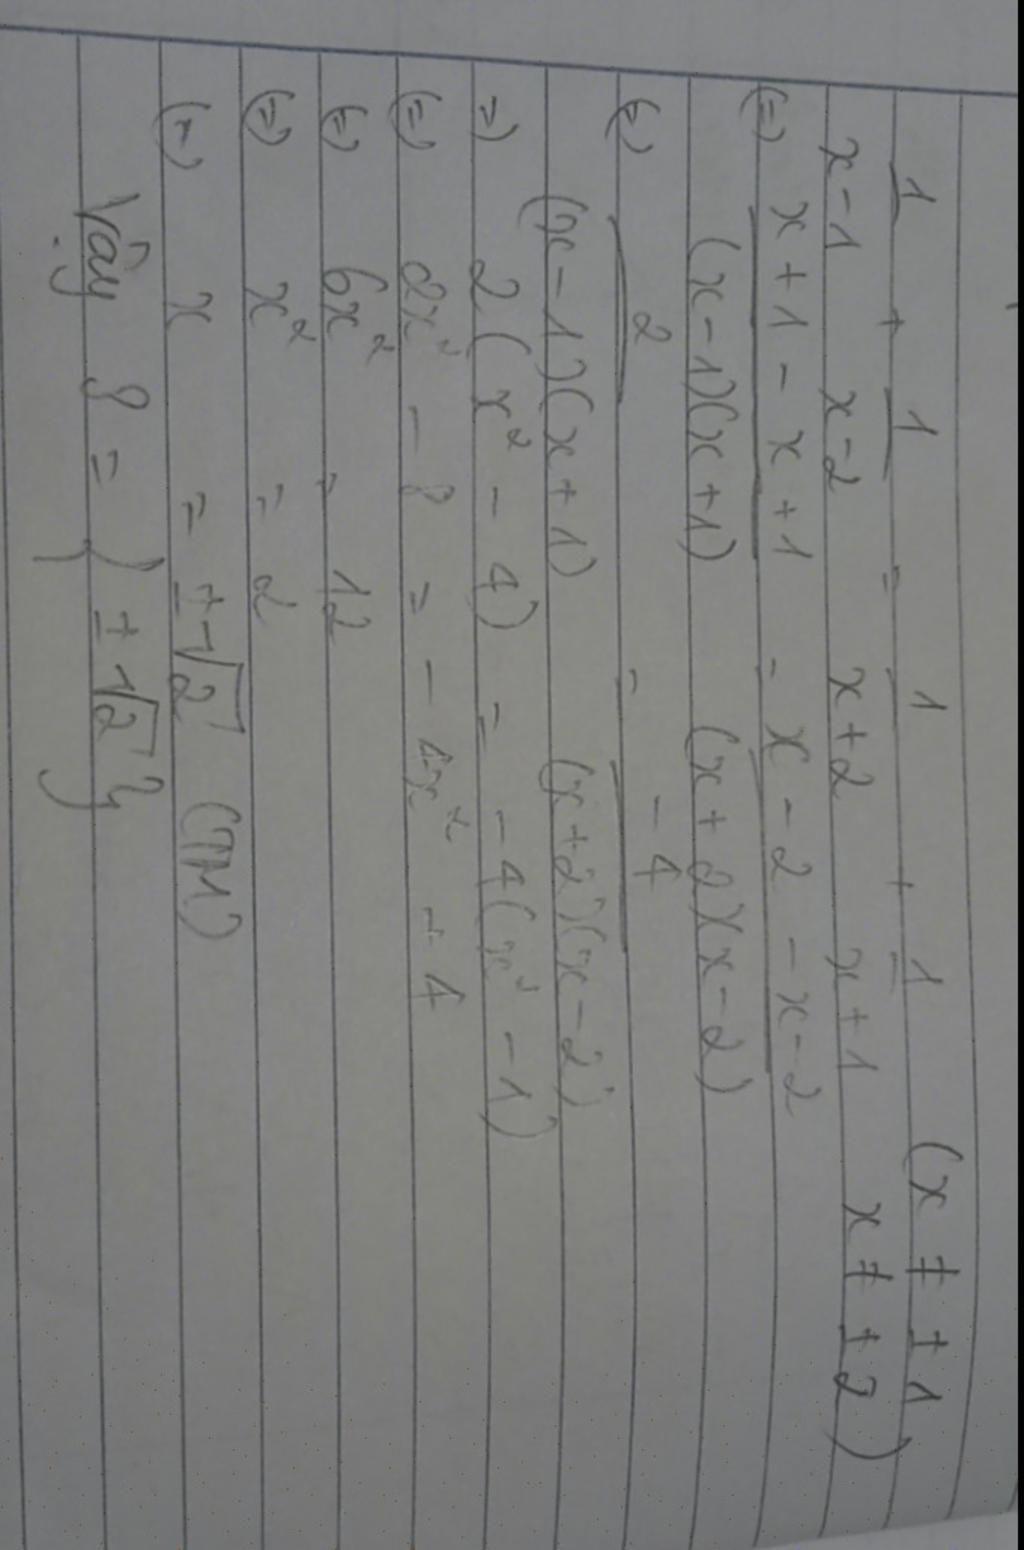 1/(x-1) + 1/(x-2) = 1/(x+2) + 1/(x+1) (x ≠ ±1
x ≠ ±2)
(=) (x+1-x+1)/((x-1)(x+1)) = (x-2-x-2)/((x+2)(x-2))
(=) 2/((x-1)(x+1)) = -4/((x+2)(x-2))
=) 2(x² - 4) = -4(x² - 1)
(=) 2x² - 8 = -4x² + 4
(=) 6x² = 12
(=) x² = 2
(=) x = ±√2 (TM)
Vậy S = {±√2}